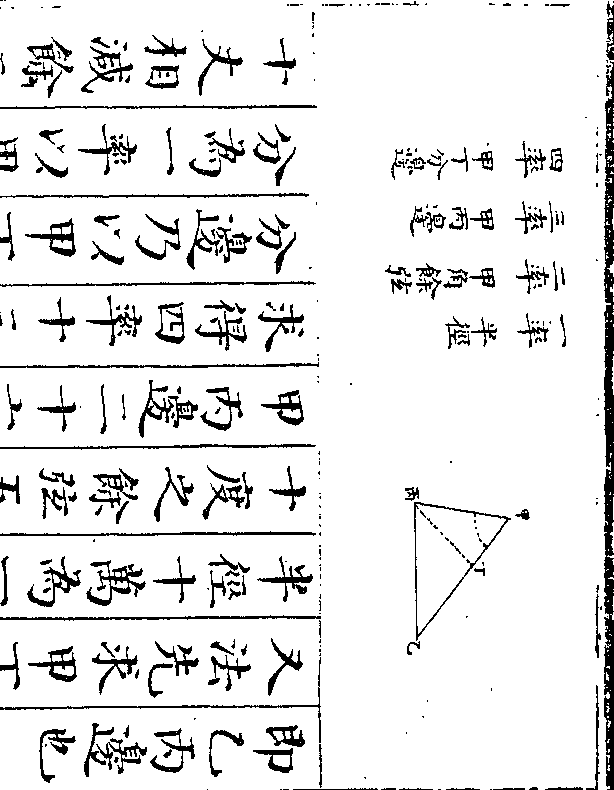 甲
丙
丁
乙
一率 半徑
二率 甲角餘弦
三率 甲丙邊
四率 甲丁分邊
即乙丙邊也
又法先求甲丁
半徑十萬為一
十度之餘弦五
甲丙邊二十
求得四率十
分邊乃以甲丁
分為一率以甲
十丈相減餘